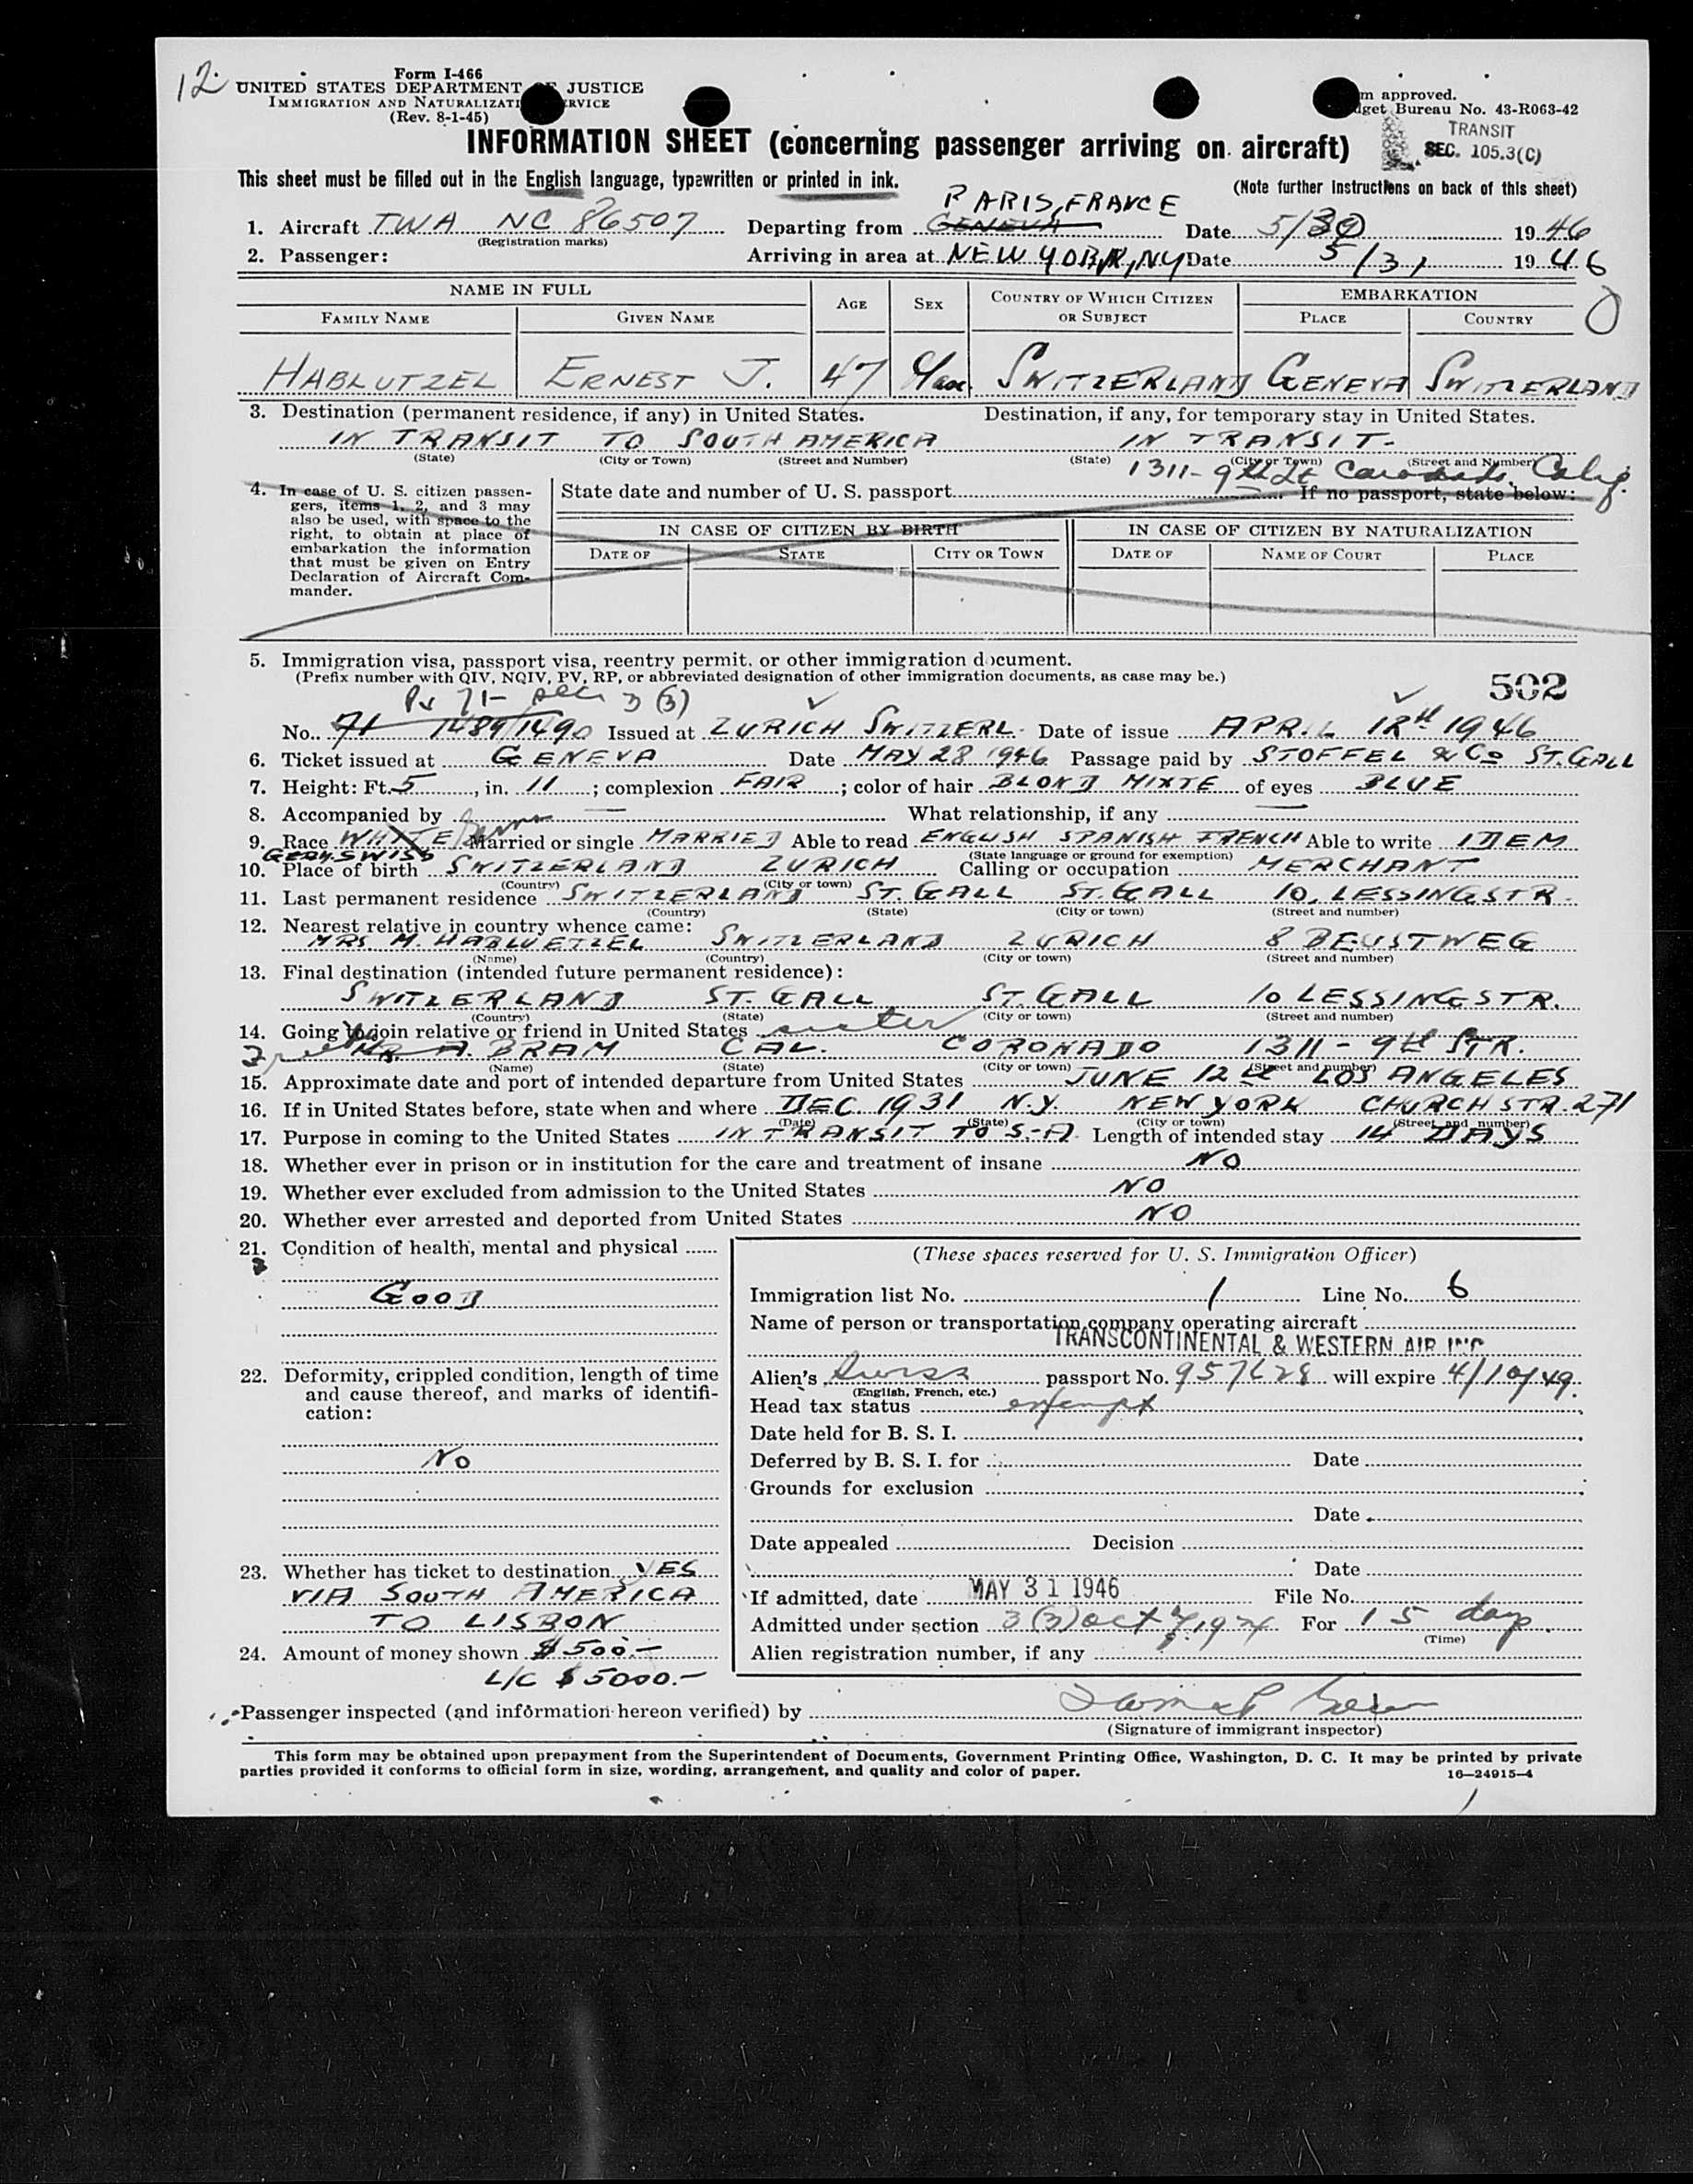 12
Form I-466
UNITED STATES DEPARTMENT OF JUSTICE
IMMIGRATION AND NATURALIZATI RVICE
(Rev. 8-1-45)
m approved.
dget Bureau No. 43-R063-42
TRANSIT
SEC. 105.3(C)
INFORMATION SHEET (concerning passenger arriving on aircraft)
This sheet must be filled out in the English language, typewritten or printed in ink.
(Note further instructions on back of this sheet)
PARIS, FRANCE
1. Aircraft TWA NC 86507 Departing from GENEVA Date 5/30 1946
(Registration marks)
2. Passenger: Arriving in area at NEW YORK, NY Date 5/31 1946
NAME IN FULL AGE SEX COUNTRY OF WHICH CITIZEN OR SUBJECT EMBARKATION
FAMILY NAME GIVEN NAME PLACE COUNTRY
HABLUTZEL ERNEST J. 47 Masc. SWITZERLAND GENEVA SWITZERLAND
3. Destination (permanent residence, if any) in United States. Destination, if any, for temporary stay in United States.
IN TRANSIT TO SOUTH AMERICA IN TRANSIT.
(State) (City or Town) (Street and Number) (State) (City or Town) (Street and Number)
1311-9th St Coronado, Calif.
4. In case of U. S. citizen passengers, items 1, 2, and 3 may also be used, with space to the right, to obtain at place of embarkation the information that must be given on Entry Declaration of Aircraft Commander.
State date and number of U. S. passport If no passport, state below:
IN CASE OF CITIZEN BY BIRTH IN CASE OF CITIZEN BY NATURALIZATION
DATE OF STATE CITY OR TOWN DATE OF NAME OF COURT PLACE
5. Immigration visa, passport visa, reentry permit, or other immigration document.
(Prefix number with QIV, NQIV, PV, RP, or abbreviated designation of other immigration documents, as case may be.)
502
PV 71- sec 3 (3)
No. 71 1489/1490 Issued at ZURICH SWITZERL. Date of issue APRIL 12th 1946
6. Ticket issued at GENEVA Date MAY 28 1946 Passage paid by STOFFEL & Co ST. GALL
7. Height: Ft. 5, in. 11; complexion FAIR; color of hair BLOND MIXTE of eyes BLUE
8. Accompanied by — What relationship, if any —
9. Race WHITE Married or single MARRIED Able to read ENGLISH SPANISH FRENCH Able to write IDEM
GERM. SWISS (State language or ground for exemption)
10. Place of birth SWITZERLAND ZURICH Calling or occupation MERCHANT
(Country) (City or town)
11. Last permanent residence SWITZERLAND ST. GALL ST. GALL 10, LESSINGSTR.
(Country) (State) (City or town) (Street and number)
12. Nearest relative in country whence came:
MRS M. HABLUETZEL SWITZERLAND ZURICH 8 BEUSTWEG
(Name) (Country) (City or town) (Street and number)
13. Final destination (intended future permanent residence):
SWITZERLAND ST. GALL ST. GALL 10 LESSINGSTR.
(Country) (State) (City or town) (Street and number)
14. Going to join relative or friend in United States sister
A. BRAM CAL. CORONADO 1311 - 9th STR.
(Name) (State) (City or town) (Street and number)
15. Approximate date and port of intended departure from United States JUNE 12th LOS ANGELES
16. If in United States before, state when and where DEC. 1931 N.Y. NEW YORK CHURCH STR. 271
(Date) (State) (City or town) (Street and number)
17. Purpose in coming to the United States IN TRANSIT TO S.-A. Length of intended stay 14 DAYS
18. Whether ever in prison or in institution for the care and treatment of insane NO
19. Whether ever excluded from admission to the United States NO
20. Whether ever arrested and deported from United States NO
21. Condition of health, mental and physical
GOOD
22. Deformity, crippled condition, length of time and cause thereof, and marks of identification:
NO
23. Whether has ticket to destination YES
VIA SOUTH AMERICA
TO LISBON
24. Amount of money shown $500.—
L/C $5000.—
(These spaces reserved for U. S. Immigration Officer)
Immigration list No. 1 Line No. 6
Name of person or transportation company operating aircraft
TRANSCONTINENTAL & WESTERN AIR INC
Alien's Swiss passport No. 957628 will expire 4/10/49.
(English, French, etc.)
Head tax status exempt
Date held for B. S. I.
Deferred by B. S. I. for Date
Grounds for exclusion
Date
Date appealed Decision
Date
If admitted, date MAY 31 1946 File No.
Admitted under section 3(3) act of 1924 For 15 days.
(Time)
Alien registration number, if any
Passenger inspected (and information hereon verified) by
(Signature of immigrant inspector)
This form may be obtained upon prepayment from the Superintendent of Documents, Government Printing Office, Washington, D. C. It may be printed by private
parties provided it conforms to official form in size, wording, arrangement, and quality and color of paper.
16—24915-4